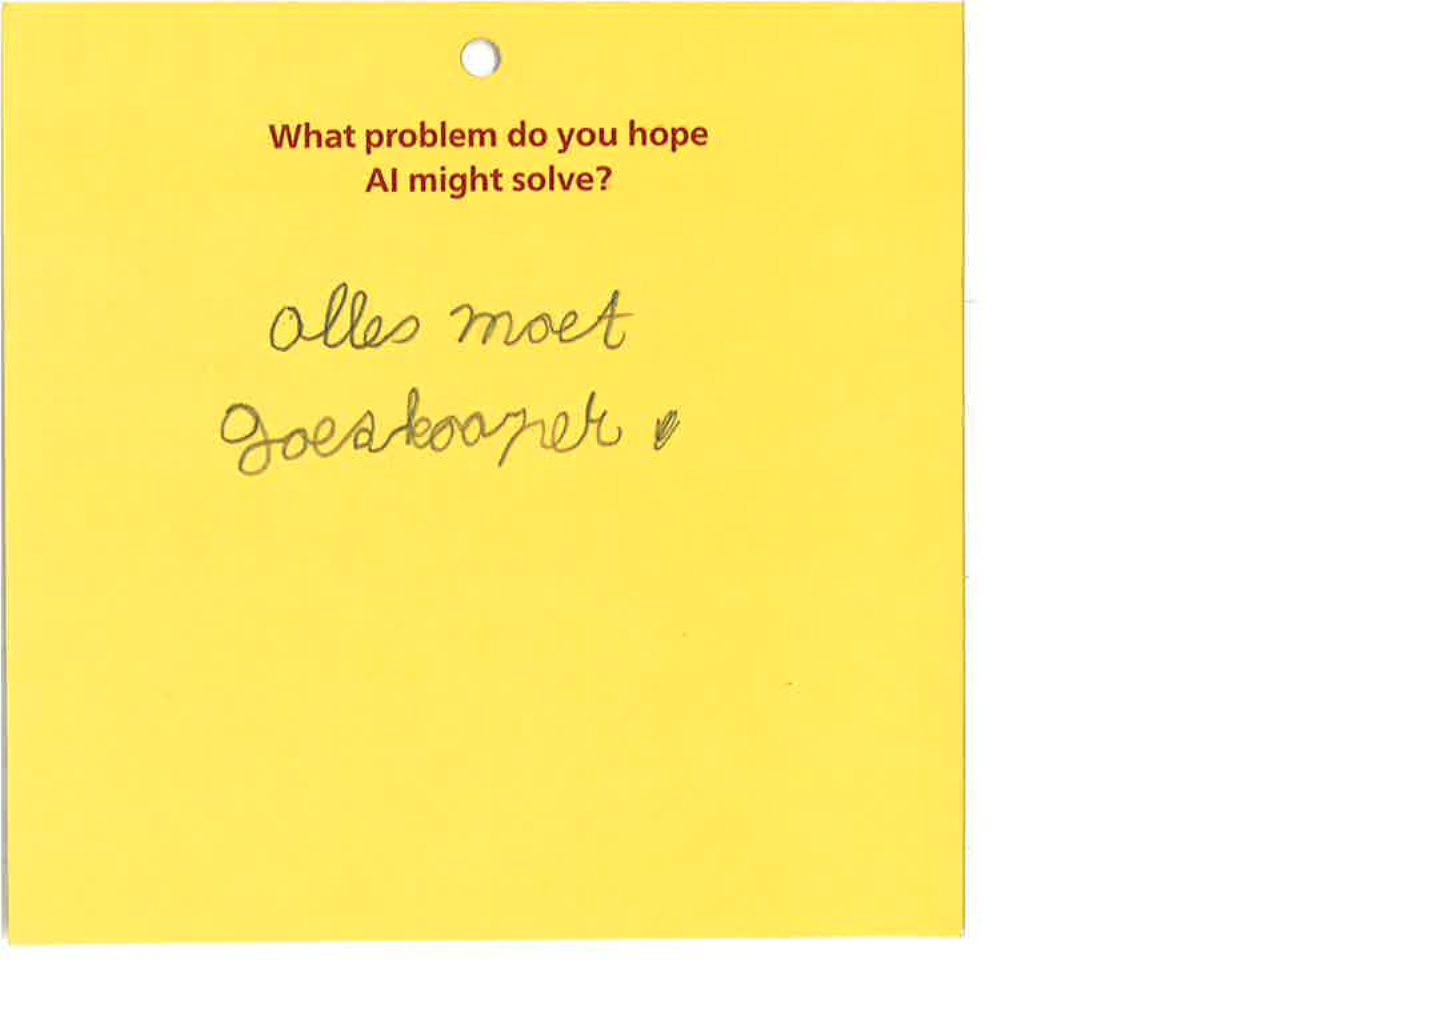 What problem do you hope
AI might solve?
alles moet
goeskooper